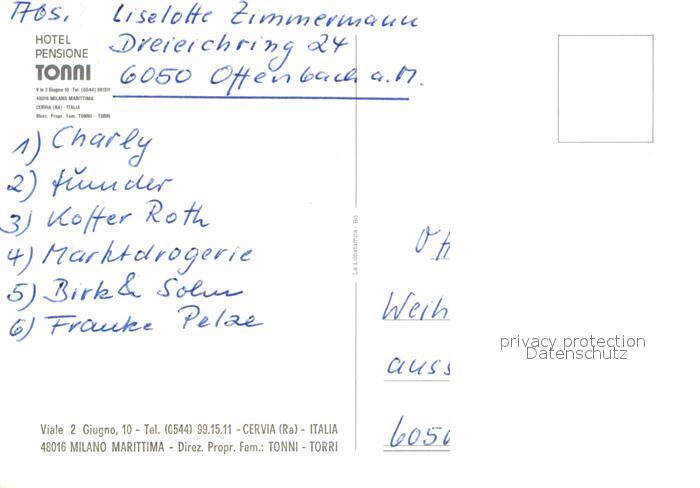 Abs. Liselotte Zimmermann
Dreieichring 24
6050 Offenbach a. M.
HOTEL
PENSIONE
TONNI
V.le 2 Giugno 10 - Tel. (0544) 991511
48016 MILANO MARITTIMA
CERVIA (RA) - ITALIA
Direz. Propr. Fam. TONNI - TORRI
1) Charly
2) Funder
3) Koffer Roth
4) Marktdrogerie
5) Birk & Sohn
6) Franke Pelze
La Litostampa - Bo
Off
Weih
auss
6050
privacy protection
Datenschutz
Viale 2 Giugno, 10 - Tel. (0544) 99.15.11 - CERVIA (Ra) - ITALIA
48016 MILANO MARITTIMA - Direz. Propr. Fam.: TONNI - TORRI